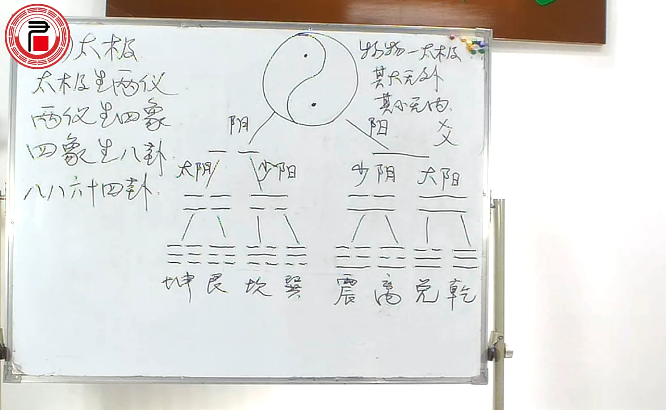 太极
太极生两仪
两仪生四象
四象生八卦
八八六十四卦
物物一太极
其大无外
其小无内
阴
阳
爻
太阴
少阳
少阴
太阳
坤 艮 坎 巽 震 离 兑 乾